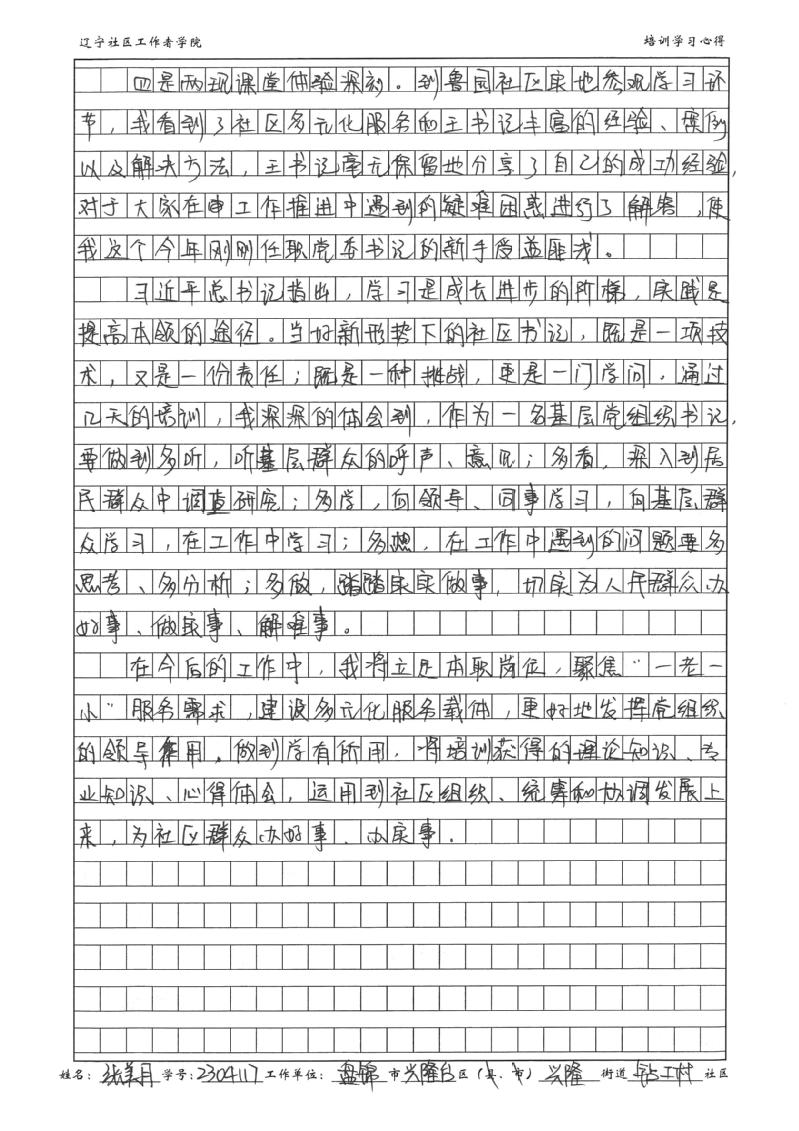 辽宁社区工作者学院 培训学习心得
四是两现课堂体验深刻。到鲁园社区实地参观学习环
节，我看到了社区多元化服务和王书记丰富的经验、案例
以及解决方法，王书记毫无保留地分享了自己的成功经验，
对于大家在工作推进中遇到的疑难困惑进行了解答，使
我这个今年刚刚任职党委书记的新手受益匪浅。
习近平总书记指出，学习是成长进步的阶梯，实践是
提高本领的途径。当好新形势下的社区书记，既是一项技
术，又是一份责任；既是一种挑战，更是一门学问，通过
几天的培训，我深深的体会到，作为一名基层党组织书记，
要做到多听，听基层群众的呼声、意见；多看，深入到居
民群众中调查研究；多学，向领导、同事学习，向基层群
众学习，在工作中学习；多想，在工作中遇到的问题要多
思考、多分析；多做，踏踏实实做事，切实为人民群众办
好事、做实事、解难事。
在今后的工作中，我将立足本职岗位，聚焦“一老一
小”服务需求，建设多元化服务载体，更好地发挥党组织
的领导作用。做到学有所用，将培训获得的理论知识、专
业知识、心得体会，运用到社区组织、统筹和协调发展上
来，为社区群众办好事、办实事。
姓名：张美月 学号：2304117 工作单位：盘锦 市 兴隆台 区（县、市） 兴隆 街道 钻工村 社区